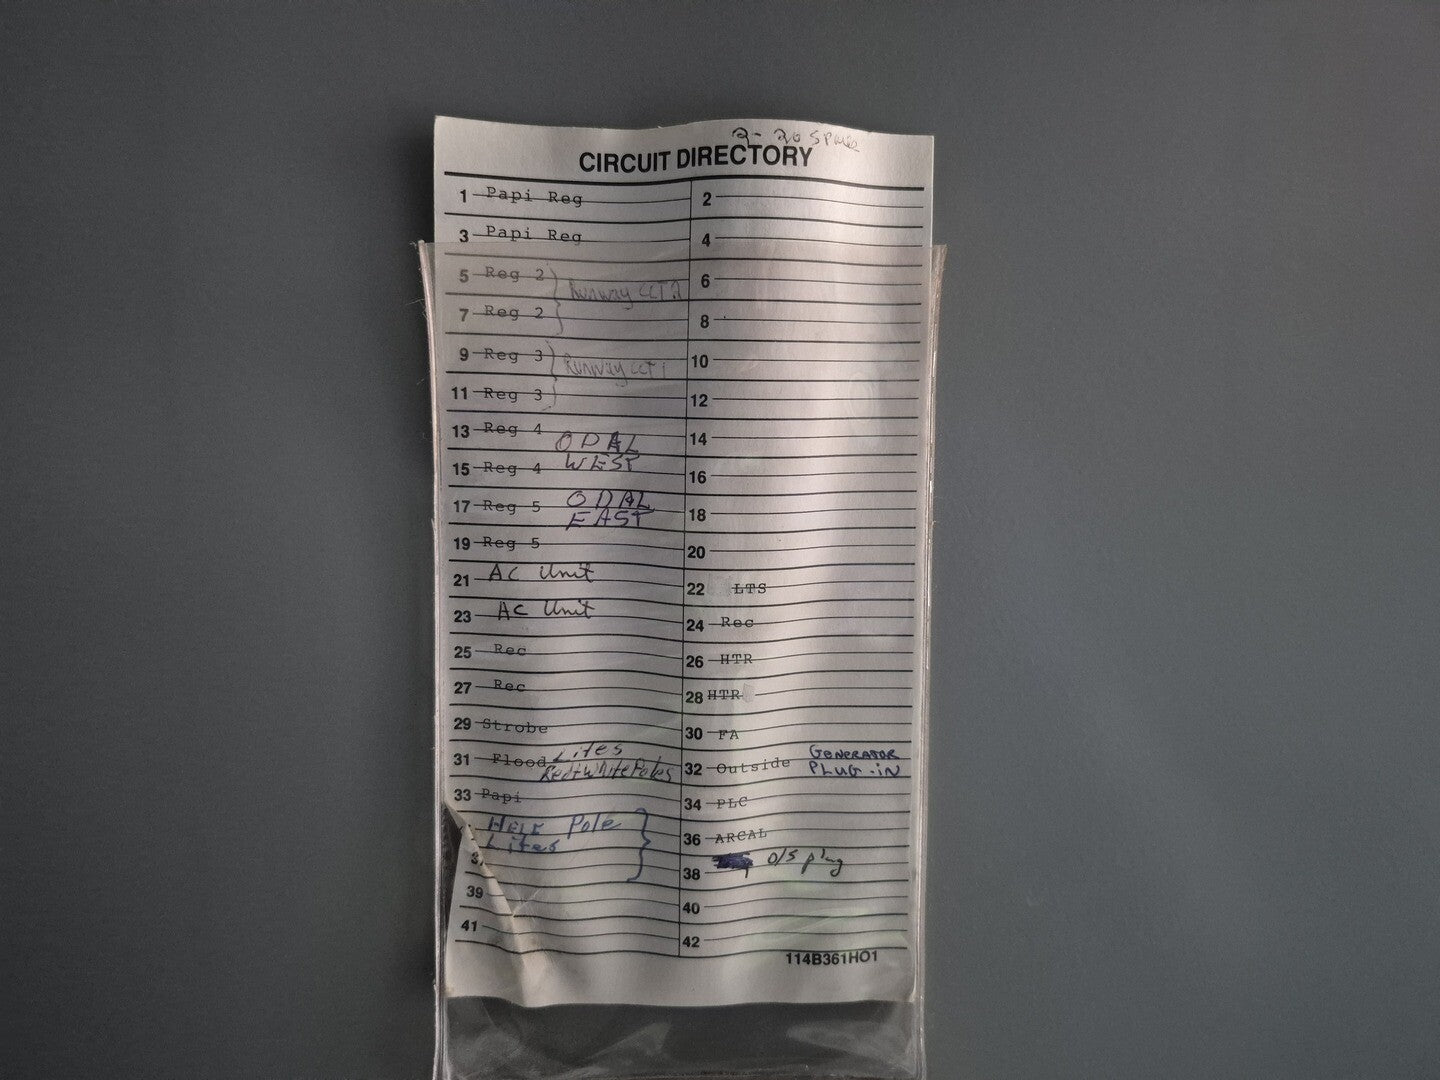 2-20 SPACE
CIRCUIT DIRECTORY
1 Papi Reg 2
3 Papi Reg 4
5 Reg 2 } Runway CCT 2 6
7 Reg 2 8
9 Reg 3 } Runway CCT 1 10
11 Reg 3 12
13 Reg 4 ODAL 14
15 Reg 4 WEST 16
17 Reg 5 ODAL EAST 18
19 Reg 5 20
21 AC Unit 22 LTS
23 AC Unit 24 Rec
25 Rec 26 HTR
27 Rec 28 HTR
29 Strobe 30 FA
31 Flood Lites Red+White Poles 32 Outside GENERATOR PLUG-IN
33 Papi 34 PLC
Pole Lites } 36 ARCAL
3 38 O/S plug
39 40
41 42
114B361HO1